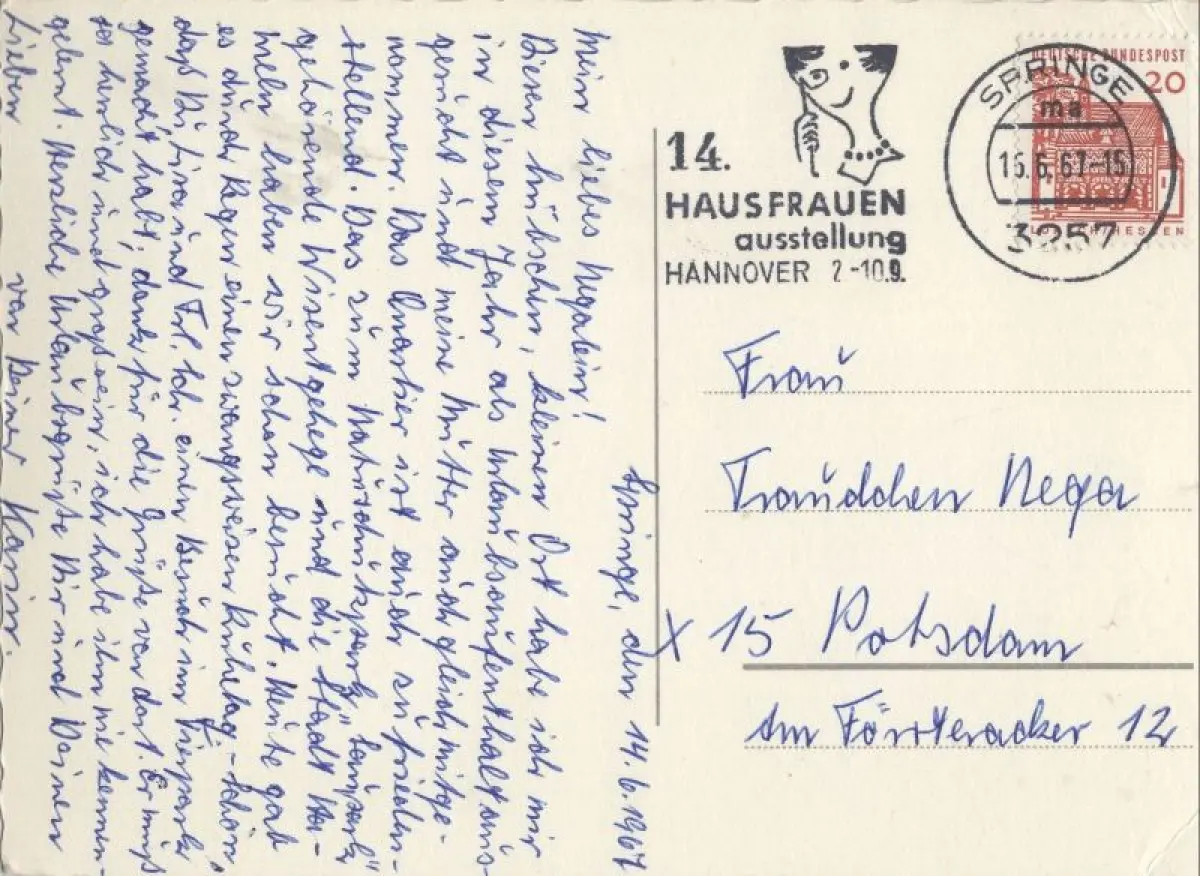 Springe, den 14.6.1967
Mein liebes Negalein!
Diesen hübschen, kleinen Ort habe ich mir
in diesem Jahr als Urlaubsaufenthalt aus-
gesucht und meine Mutter auch gleich mitge-
nommen. Das Quartier ist auch zufrieden-
stellend. Das zum Naturschutzpark "Saupark"
gehörende Wisentgehege und die Stadt Ha-
meln haben wir schon besucht. Heute gab
es durch Regen einen zwangsweisen Ruhetag. – Schön
daß Du, Lira und Frl. einen Besuch im Tierpark
gemacht habt; dank für die Grüße von dort. Er muß
ja herrlich und groß sein, ich habe ihn nie kennen-
gelernt. Herzliche Urlaubsgrüße Dir und Deinen
Lieben von Deiner Karin.
14.
HAUSFRAUEN
ausstellung
HANNOVER 2.-10.9.
SPRINGE
ma
15.6.67-15
3257
DEUTSCHE BUNDESPOST
20
LORSCH/HESSEN
Frau
Traudchen Nega
X 15 Potsdam
Am Försteracker 12